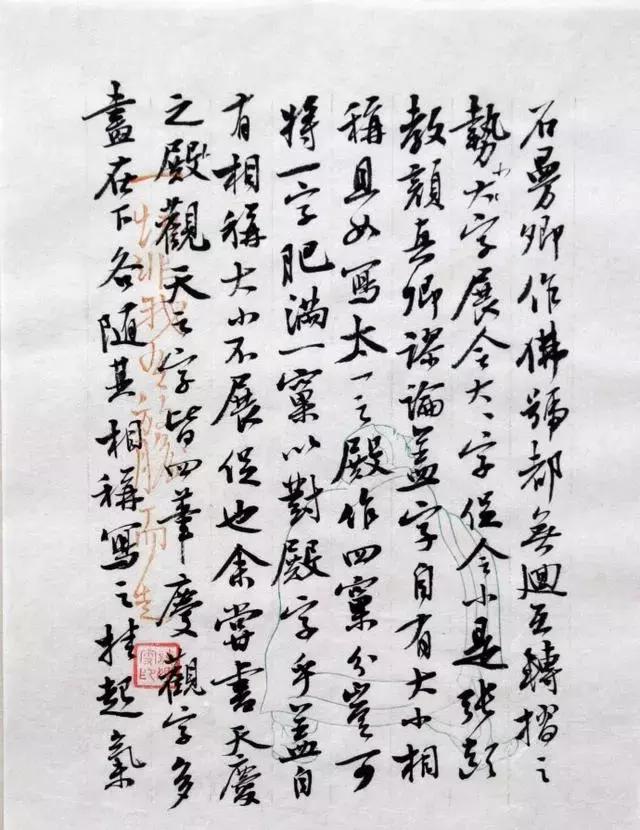 石曼卿作佛號都無迴互轉摺之
勢小大字展令大大字促令小是張顛
教顏真卿謬論蓋字自有大小相
稱且如寫太一之殿作四窠分豈可
將一字肥滿一窠以對殿字乎蓋自
有相稱大小不展促也余嘗書天慶
之殿觀天之字皆四筆慶觀字多
畫在下各隨其相稱寫之挂起氣